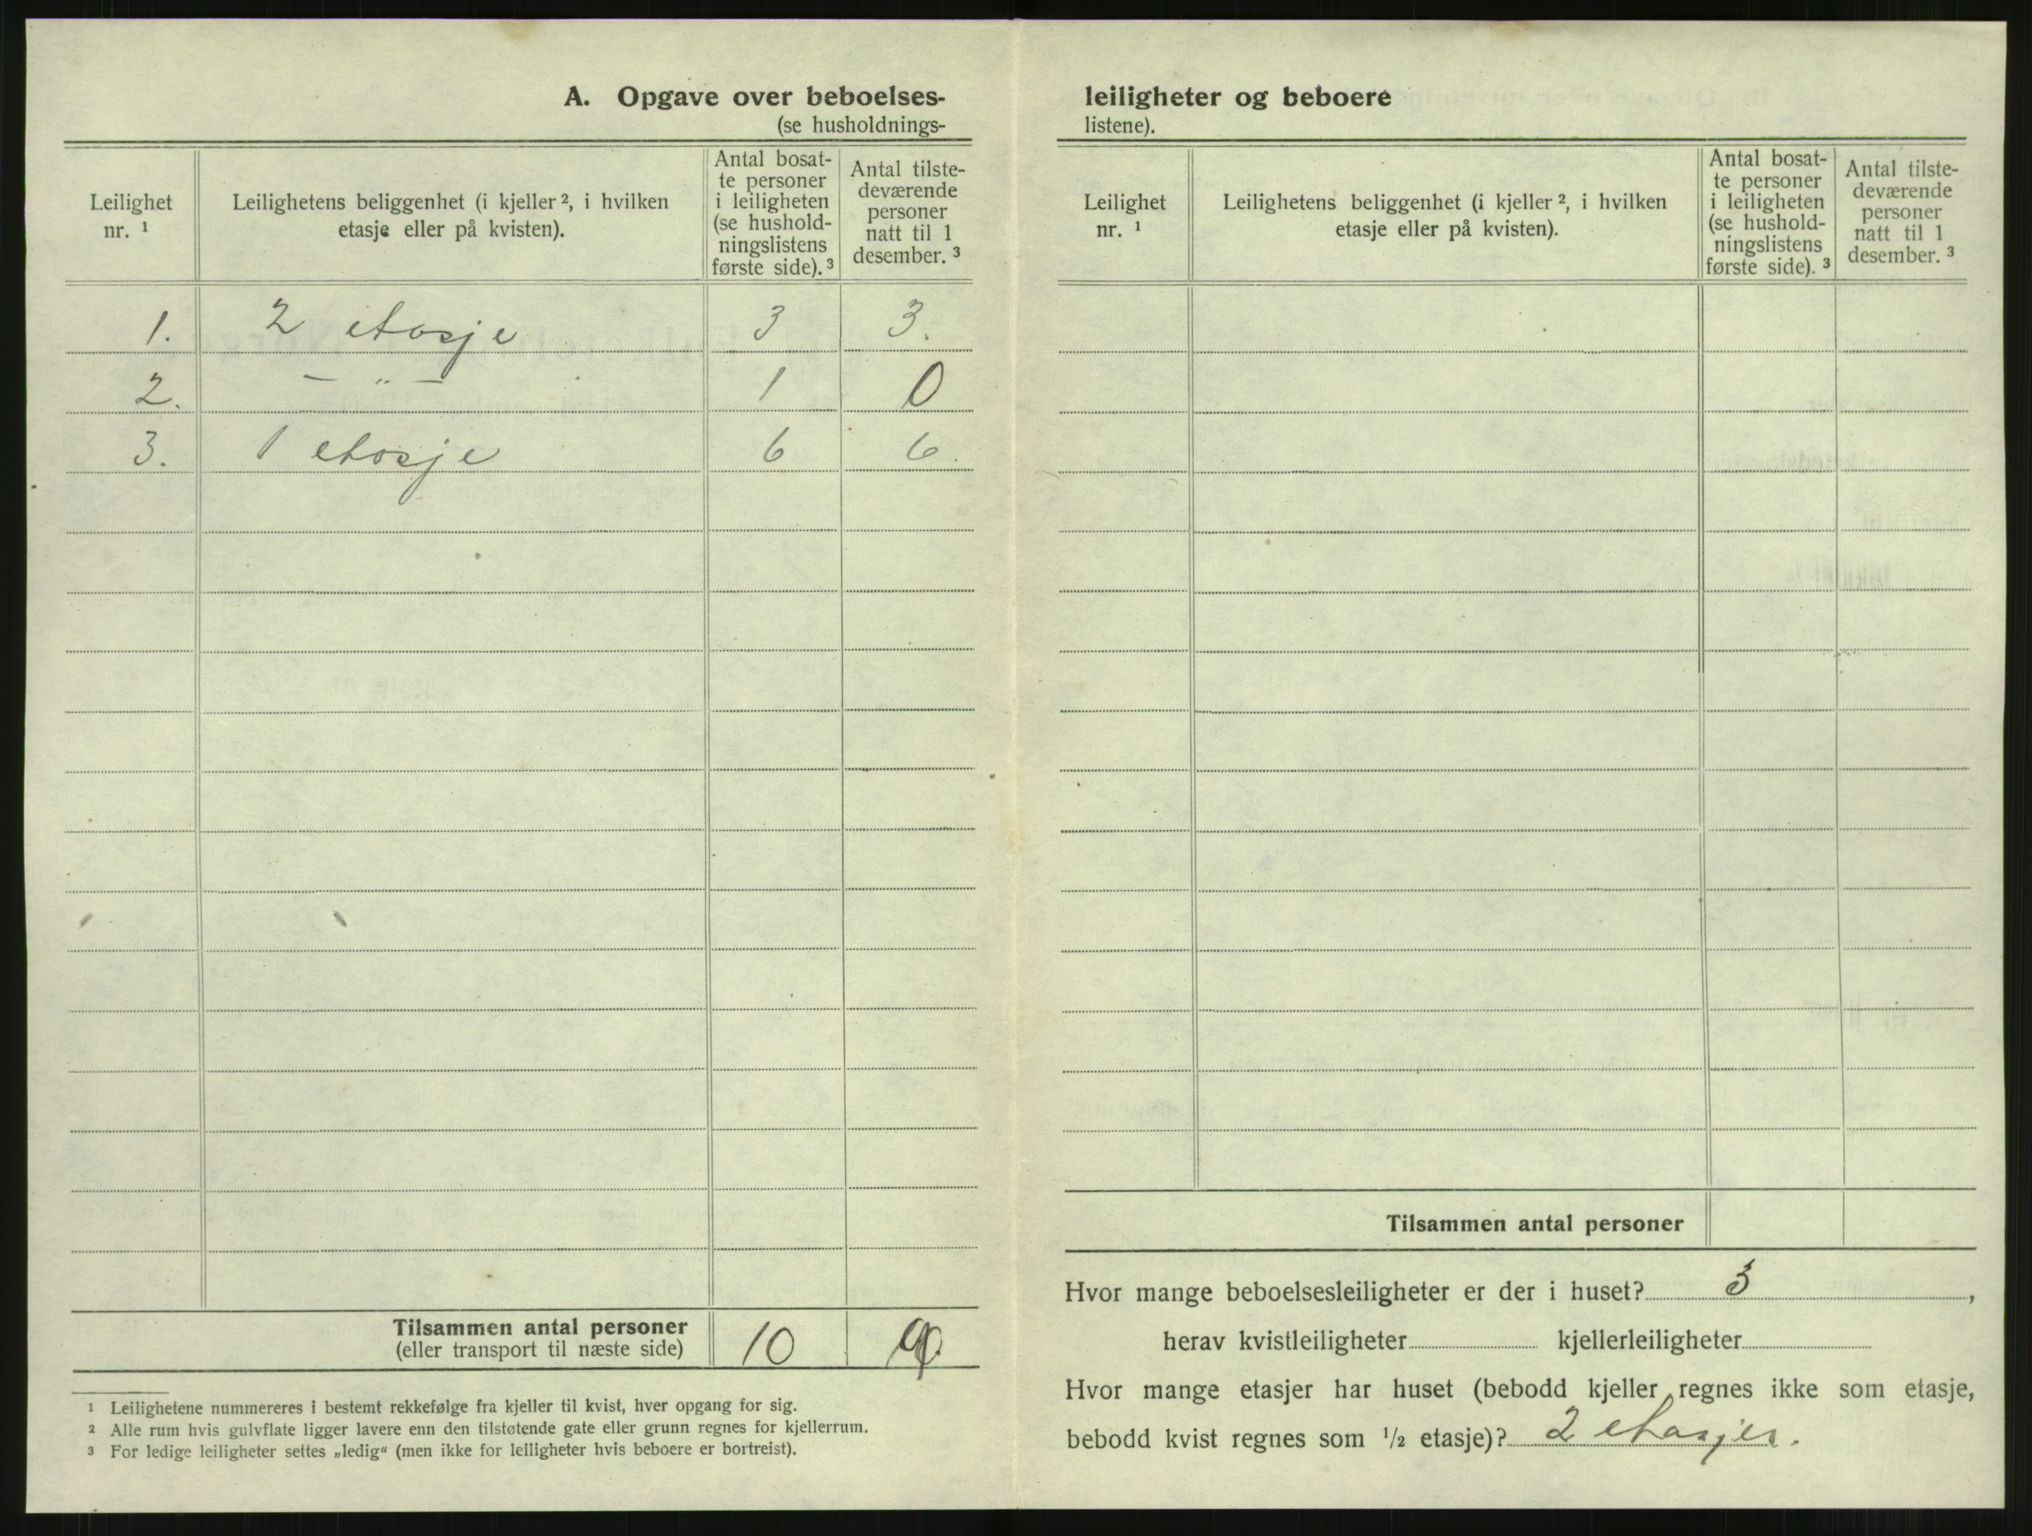 A. Opgave over beboelses-
(se husholdnings-
Leilighet nr. ¹
Leilighetens beliggenhet (i kjeller ², i hvilken
etasje eller på kvisten).
Antal bosat-
te personer
i leiligheten
(se hushold-
ningslistens
første side). ³
Antal tilste-
deværende
personer
natt til 1
desember. ³
1. 2 etasje 3 3.
2. — „ — 1 0
3. 1 etasje 6 6.
Tilsammen antal personer
(eller transport til næste side)
10 9
¹ Leilighetene nummereres i bestemt rekkefølge fra kjeller til kvist, hver opgang for sig.
² Alle rum hvis gulvflate ligger lavere enn den tilstøtende gate eller grunn regnes for kjellerrum.
³ For ledige leiligheter settes „ledig“ (men ikke for leiligheter hvis beboere er bortreist).
leiligheter og beboere
listene).
Leilighet nr. ¹
Leilighetens beliggenhet (i kjeller ², i hvilken
etasje eller på kvisten).
Antal bosat-
te personer
i leiligheten
(se hushold-
ningslistens
første side). ³
Antal tilste-
deværende
personer
natt til 1
desember. ³
Tilsammen antal personer
Hvor mange beboelsesleiligheter er der i huset? 3,
herav kvistleiligheter kjellerleiligheter
Hvor mange etasjer har huset (bebodd kjeller regnes ikke som etasje,
bebodd kvist regnes som ½ etasje)? 2 etasjer.